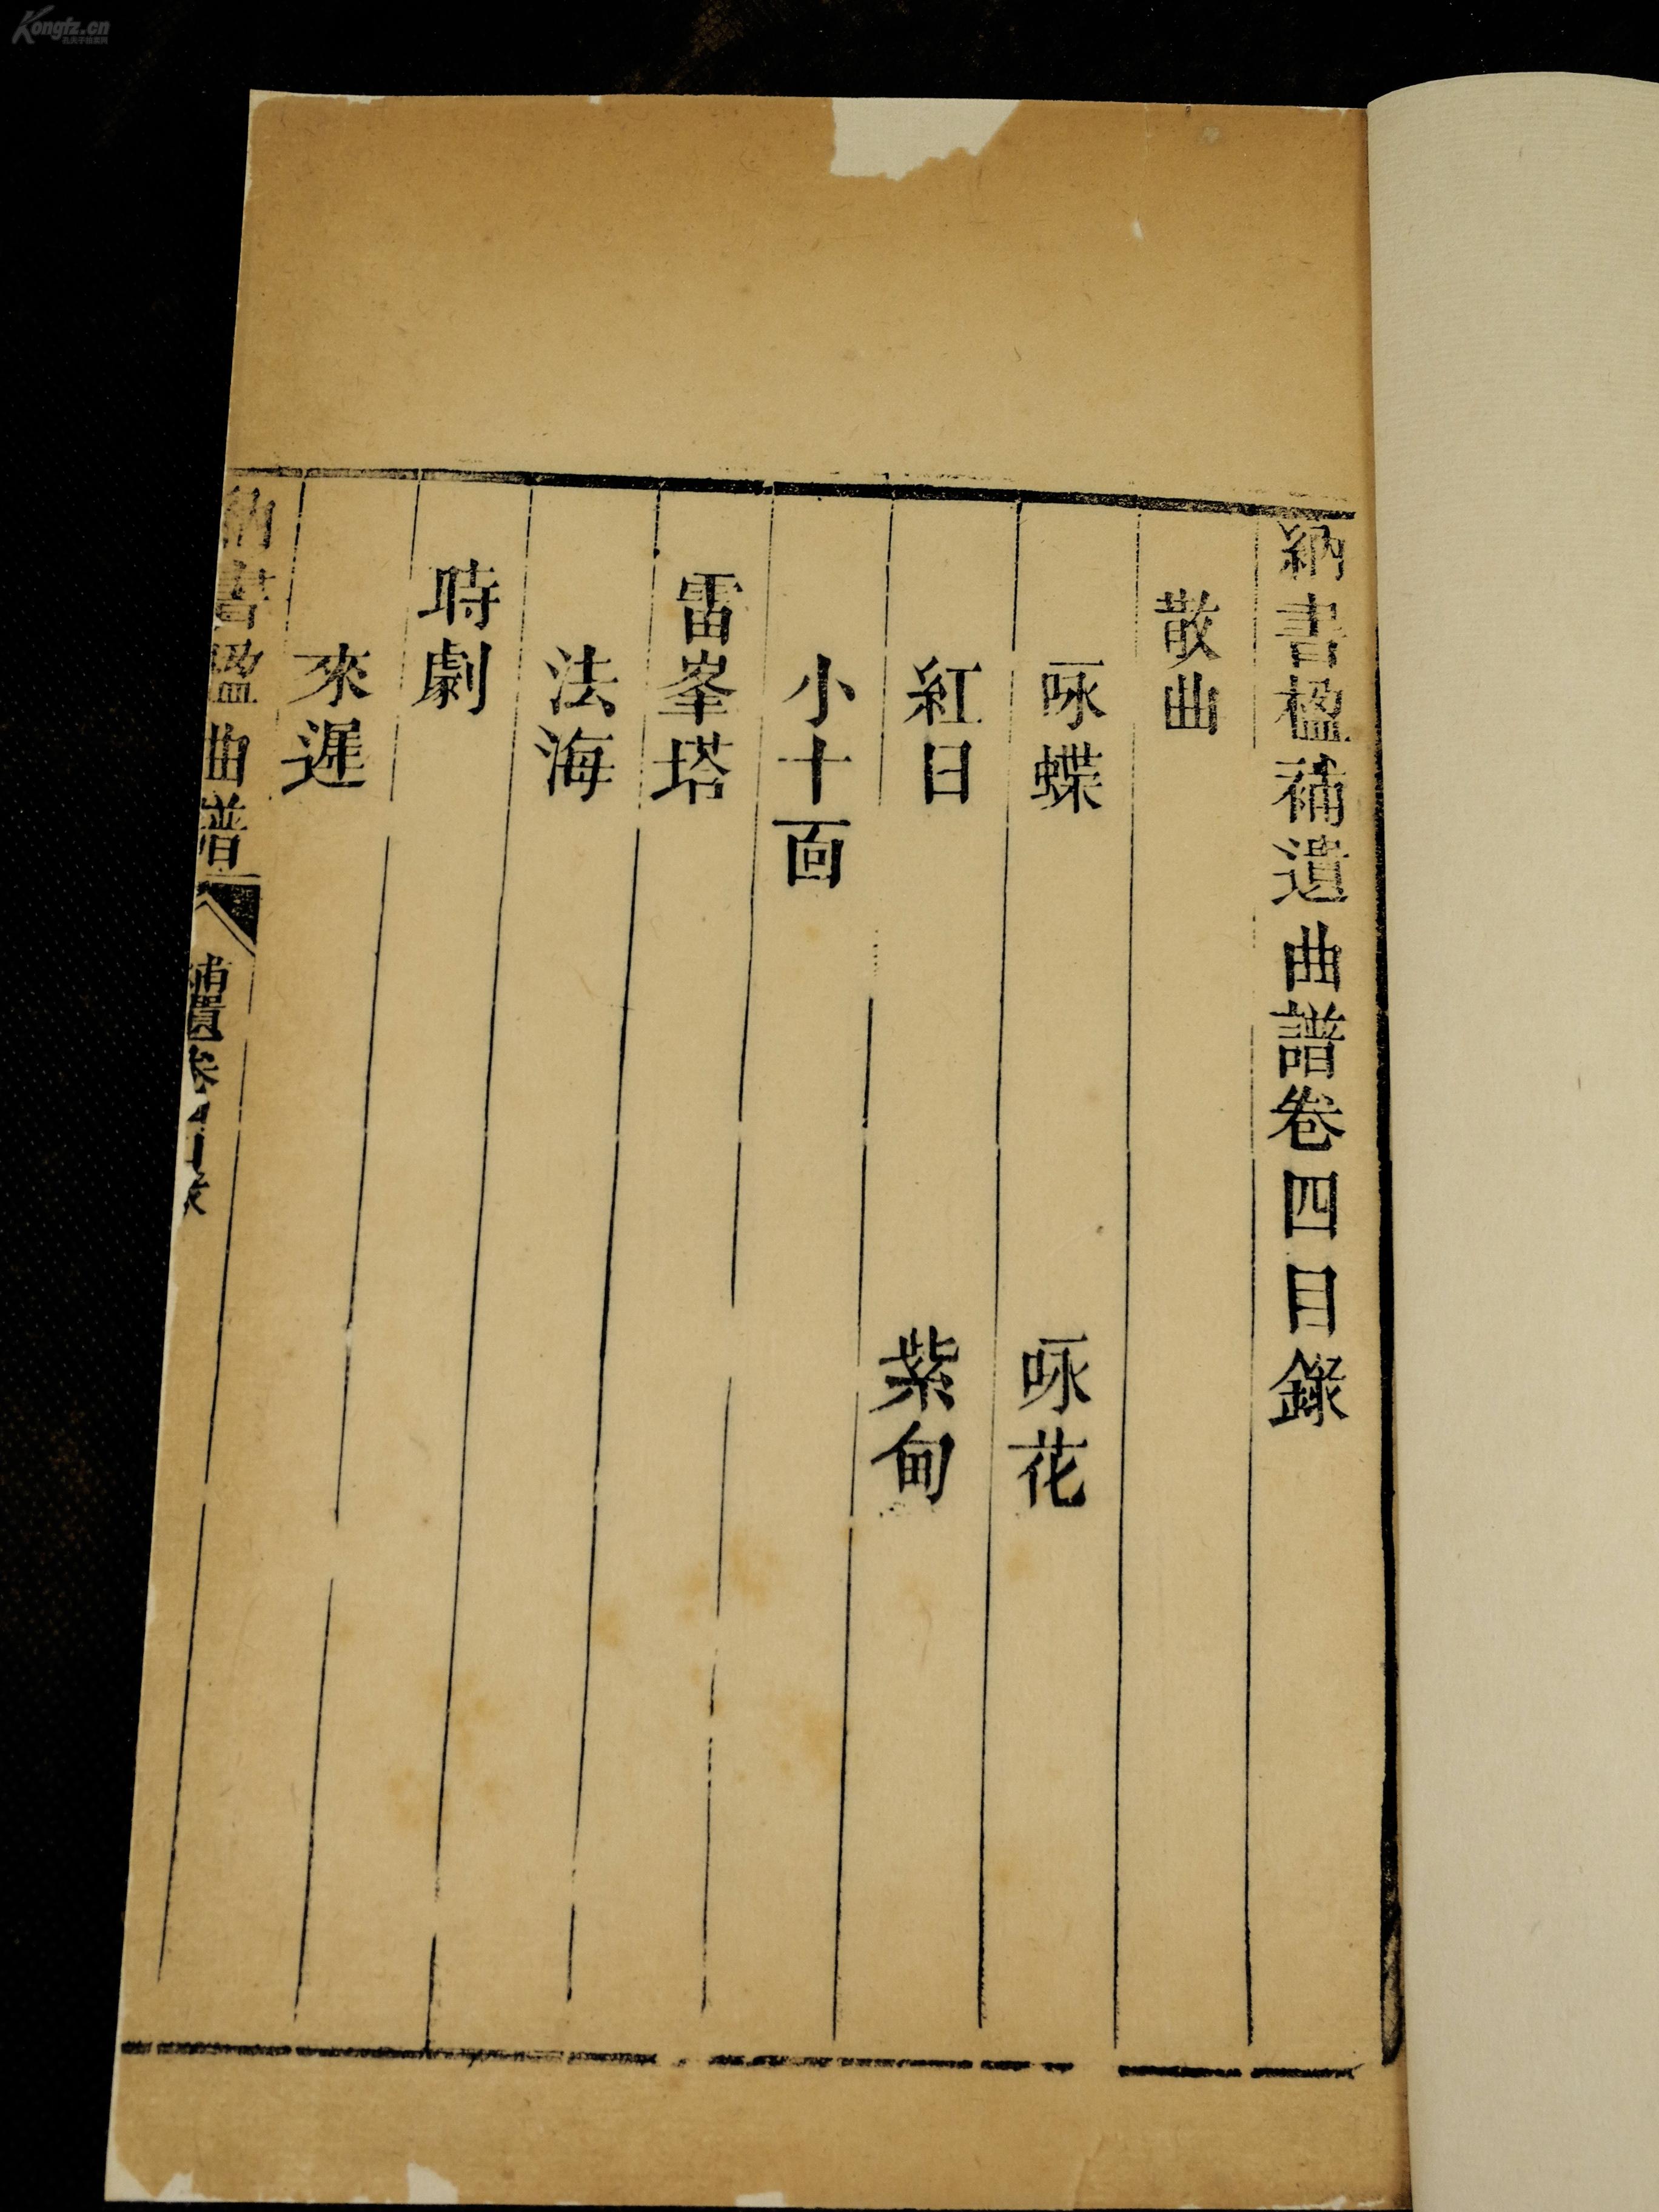 納書楹補遺曲譜卷四目錄
散曲
咏蝶 咏花
紅日 紫甸
小十面
雷峯塔
法海
時劇
來遲
納書楹曲譜 補遺卷
Kongfz.cn